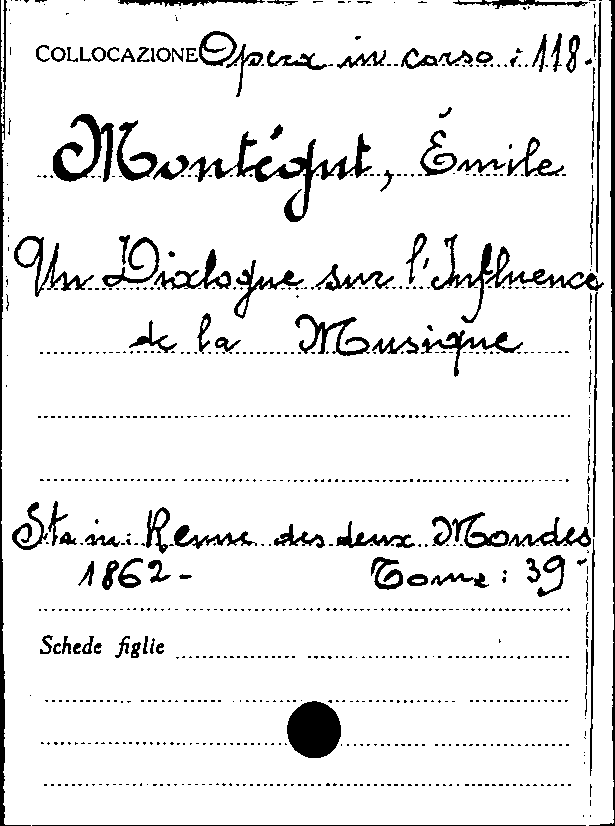 COLLOCAZIONE Opera in corso: 118.
Montégut, Émile
Un Dialogue sur l'Influence
de la Musique
Sta in: Revue des deux Mondes
1862- Tome: 39-
Schede figlie